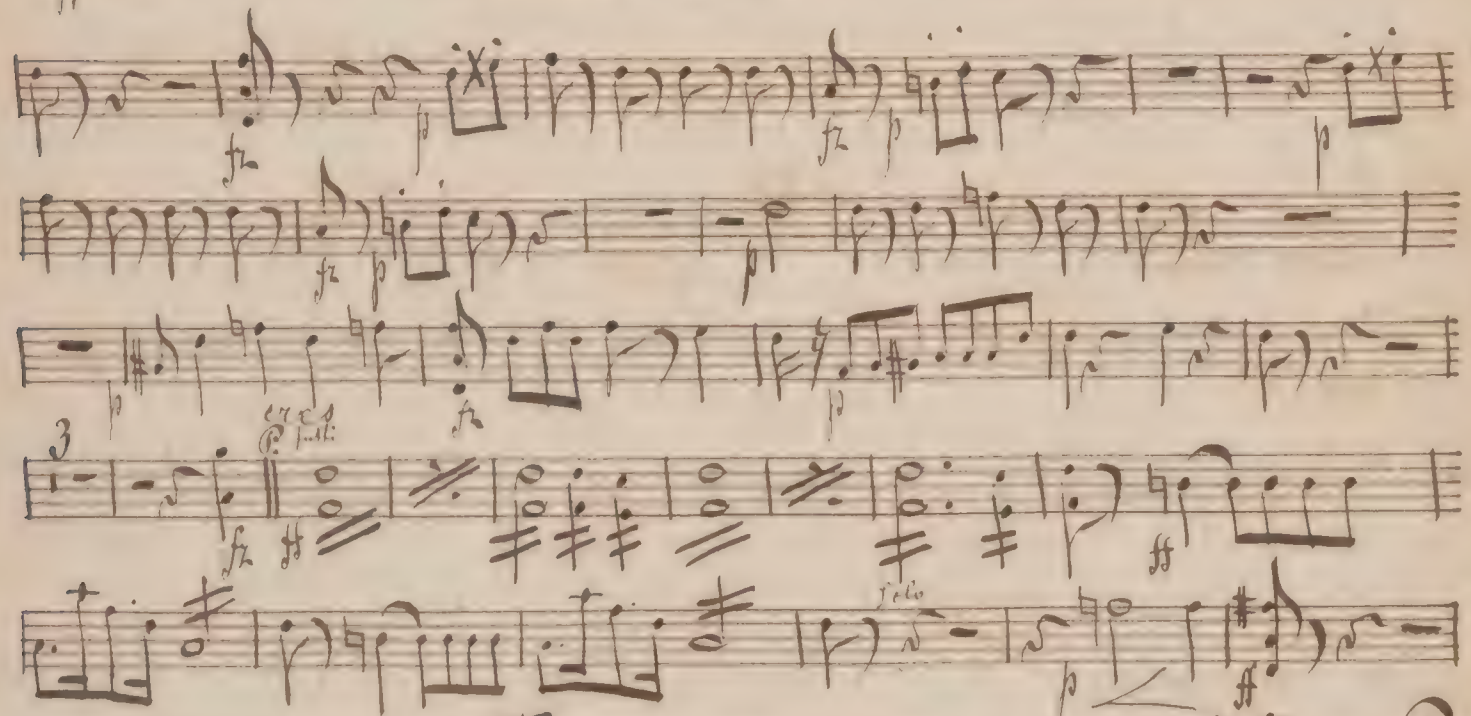 fz p fz p p
fz p p
p fz p
cres
3
fz ff ff
Solo
p ff